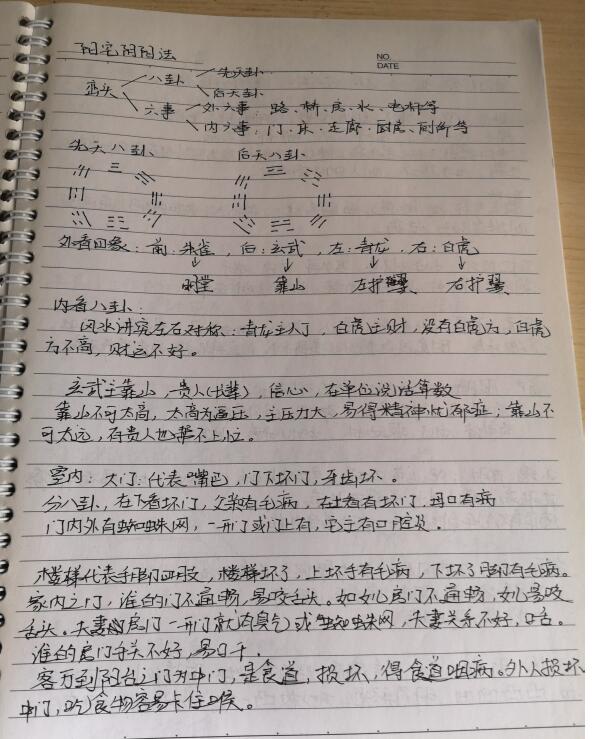 阳宅阴阳法
NO.
DATE
峦头 八卦 先天卦
后天卦
六事 外六事:路、桥、房、水、电杆等
内六事:门、床、走廊、厨房、厕所等
先天八卦 后天八卦
外看四象:前:朱雀,后:玄武,左:青龙,右:白虎
明堂 靠山 左护翼 右护翼
内看八卦:
风水讲究左右对称:青龙主人丁,白虎主财,没有白虎方,白虎
方不高,财运不好。
玄武主靠山,贵人(长辈),信心,在单位说话算数
靠山不可太高,太高为逼压,主压力大,易得精神忧郁症;靠山不
可太远,有贵人也帮不上忙。
室内:大门:代表嘴巴,门下坏门,牙齿坏。
分八卦,在下看坏门,父亲有毛病,在上看有坏门,母口有病
门内外有蜘蛛网,一开门或门上有,宅主有口腔炎。
楼梯代表手脚四肢,楼梯坏了,上坏手有毛病,下坏了脚有毛病。
家内之门,谁的门不通畅,易咬舌头。如女儿房门不通畅,女儿易咬
舌头。夫妻房门一开门就闻臭气或蜘蛛网,夫妻关系不好,口舌。
谁的房门手头不好,易口干。
客厅到阳台之门为中门,是食道,损坏,得食道咽病。外人损坏
中门,吃食物容易卡住喉。